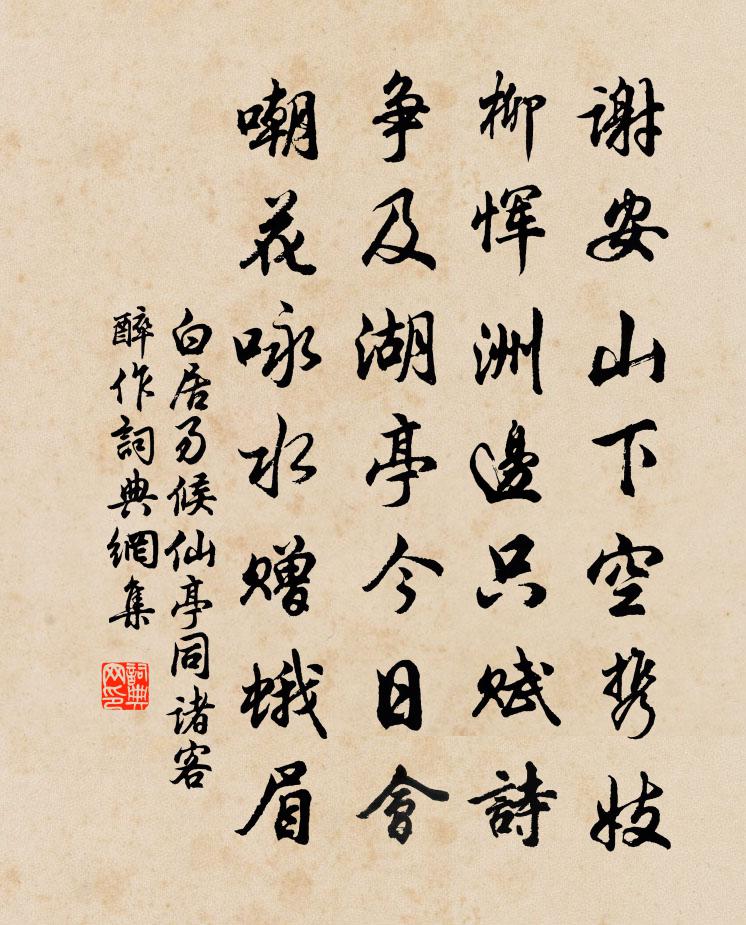 谢安山下空携妓
柳恽洲邊只赋詩
争及湖亭今日會
嘲花咏水赠蛾眉
白居易候仙亭同诸客
醉作詞典網集
詞典网印